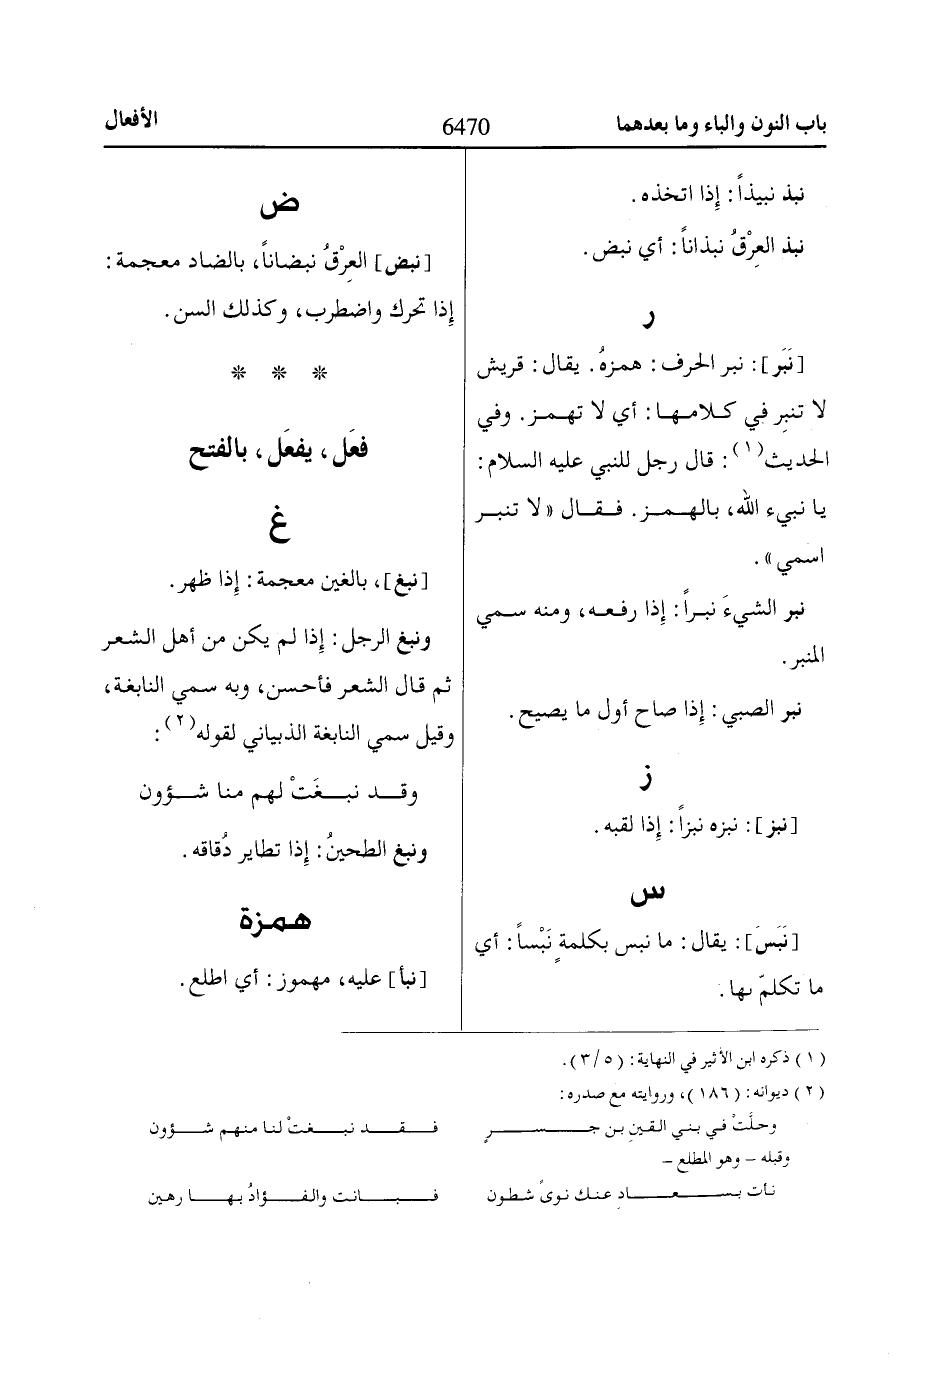 باب النون والباء وما بعدهما 6470 الأفعال
نبذ نبيذاً: إِذا اتخذه.
نبذ العِرْقُ نبذاناً: أي نبض.
ر
[نَبَر]: نبر الحرف: همزهُ. يقال: قريش
لا تنبِر في كلامها: أي لا تهمز. وفي
الحديث(١): قال رجل للنبي عليه السلام:
يا نبيء الله، بالهمز. فقال «لا تنبر
اسمي».
نبر الشيءَ نبراً: إِذا رفعه، ومنه سمي
المنبر.
نبر الصبي: إِذا صاح أول ما يصيح.
ز
[نبز]: نبزه نبزاً: إِذا لقبه.
س
[نَبَسَ]: يقال: ما نبس بكلمةٍ نَبْساً: أي
ما تكلمّ بها.
ض
[نبض] العِرْقُ نبضاناً، بالضاد معجمة:
إِذا تحرك واضطرب، وكذلك السن.
* * *
فعَل، يفعَل، بالفتح
غ
[نبغ]، بالغين معجمة: إِذا ظهر.
ونبغ الرجل: إِذا لم يكن من أهل الشعر
ثم قال الشعر فأحسن، وبه سمي النابغة،
وقيل سمي النابغة الذبياني لقوله(٢):
وقد نبغَتْ لهم منا شؤون
ونبغ الطحينُ: إِذا تطاير دُقاقه.
همزة
[نبأ] عليه، مهموز: أي اطلع.
(١) ذكره ابن الأثير في النهاية: (٣/٥).
(٢) ديوانه: (١٨٦)، وروايته مع صدره:
وحلَّتْ في بني القين بن جسرٍ فقد نبغتْ لنا منهم شؤون
وقبله – وهو المطلع –
نأت بسعاد عنك نوىً شطون فبانت والفؤادُ بها رهين